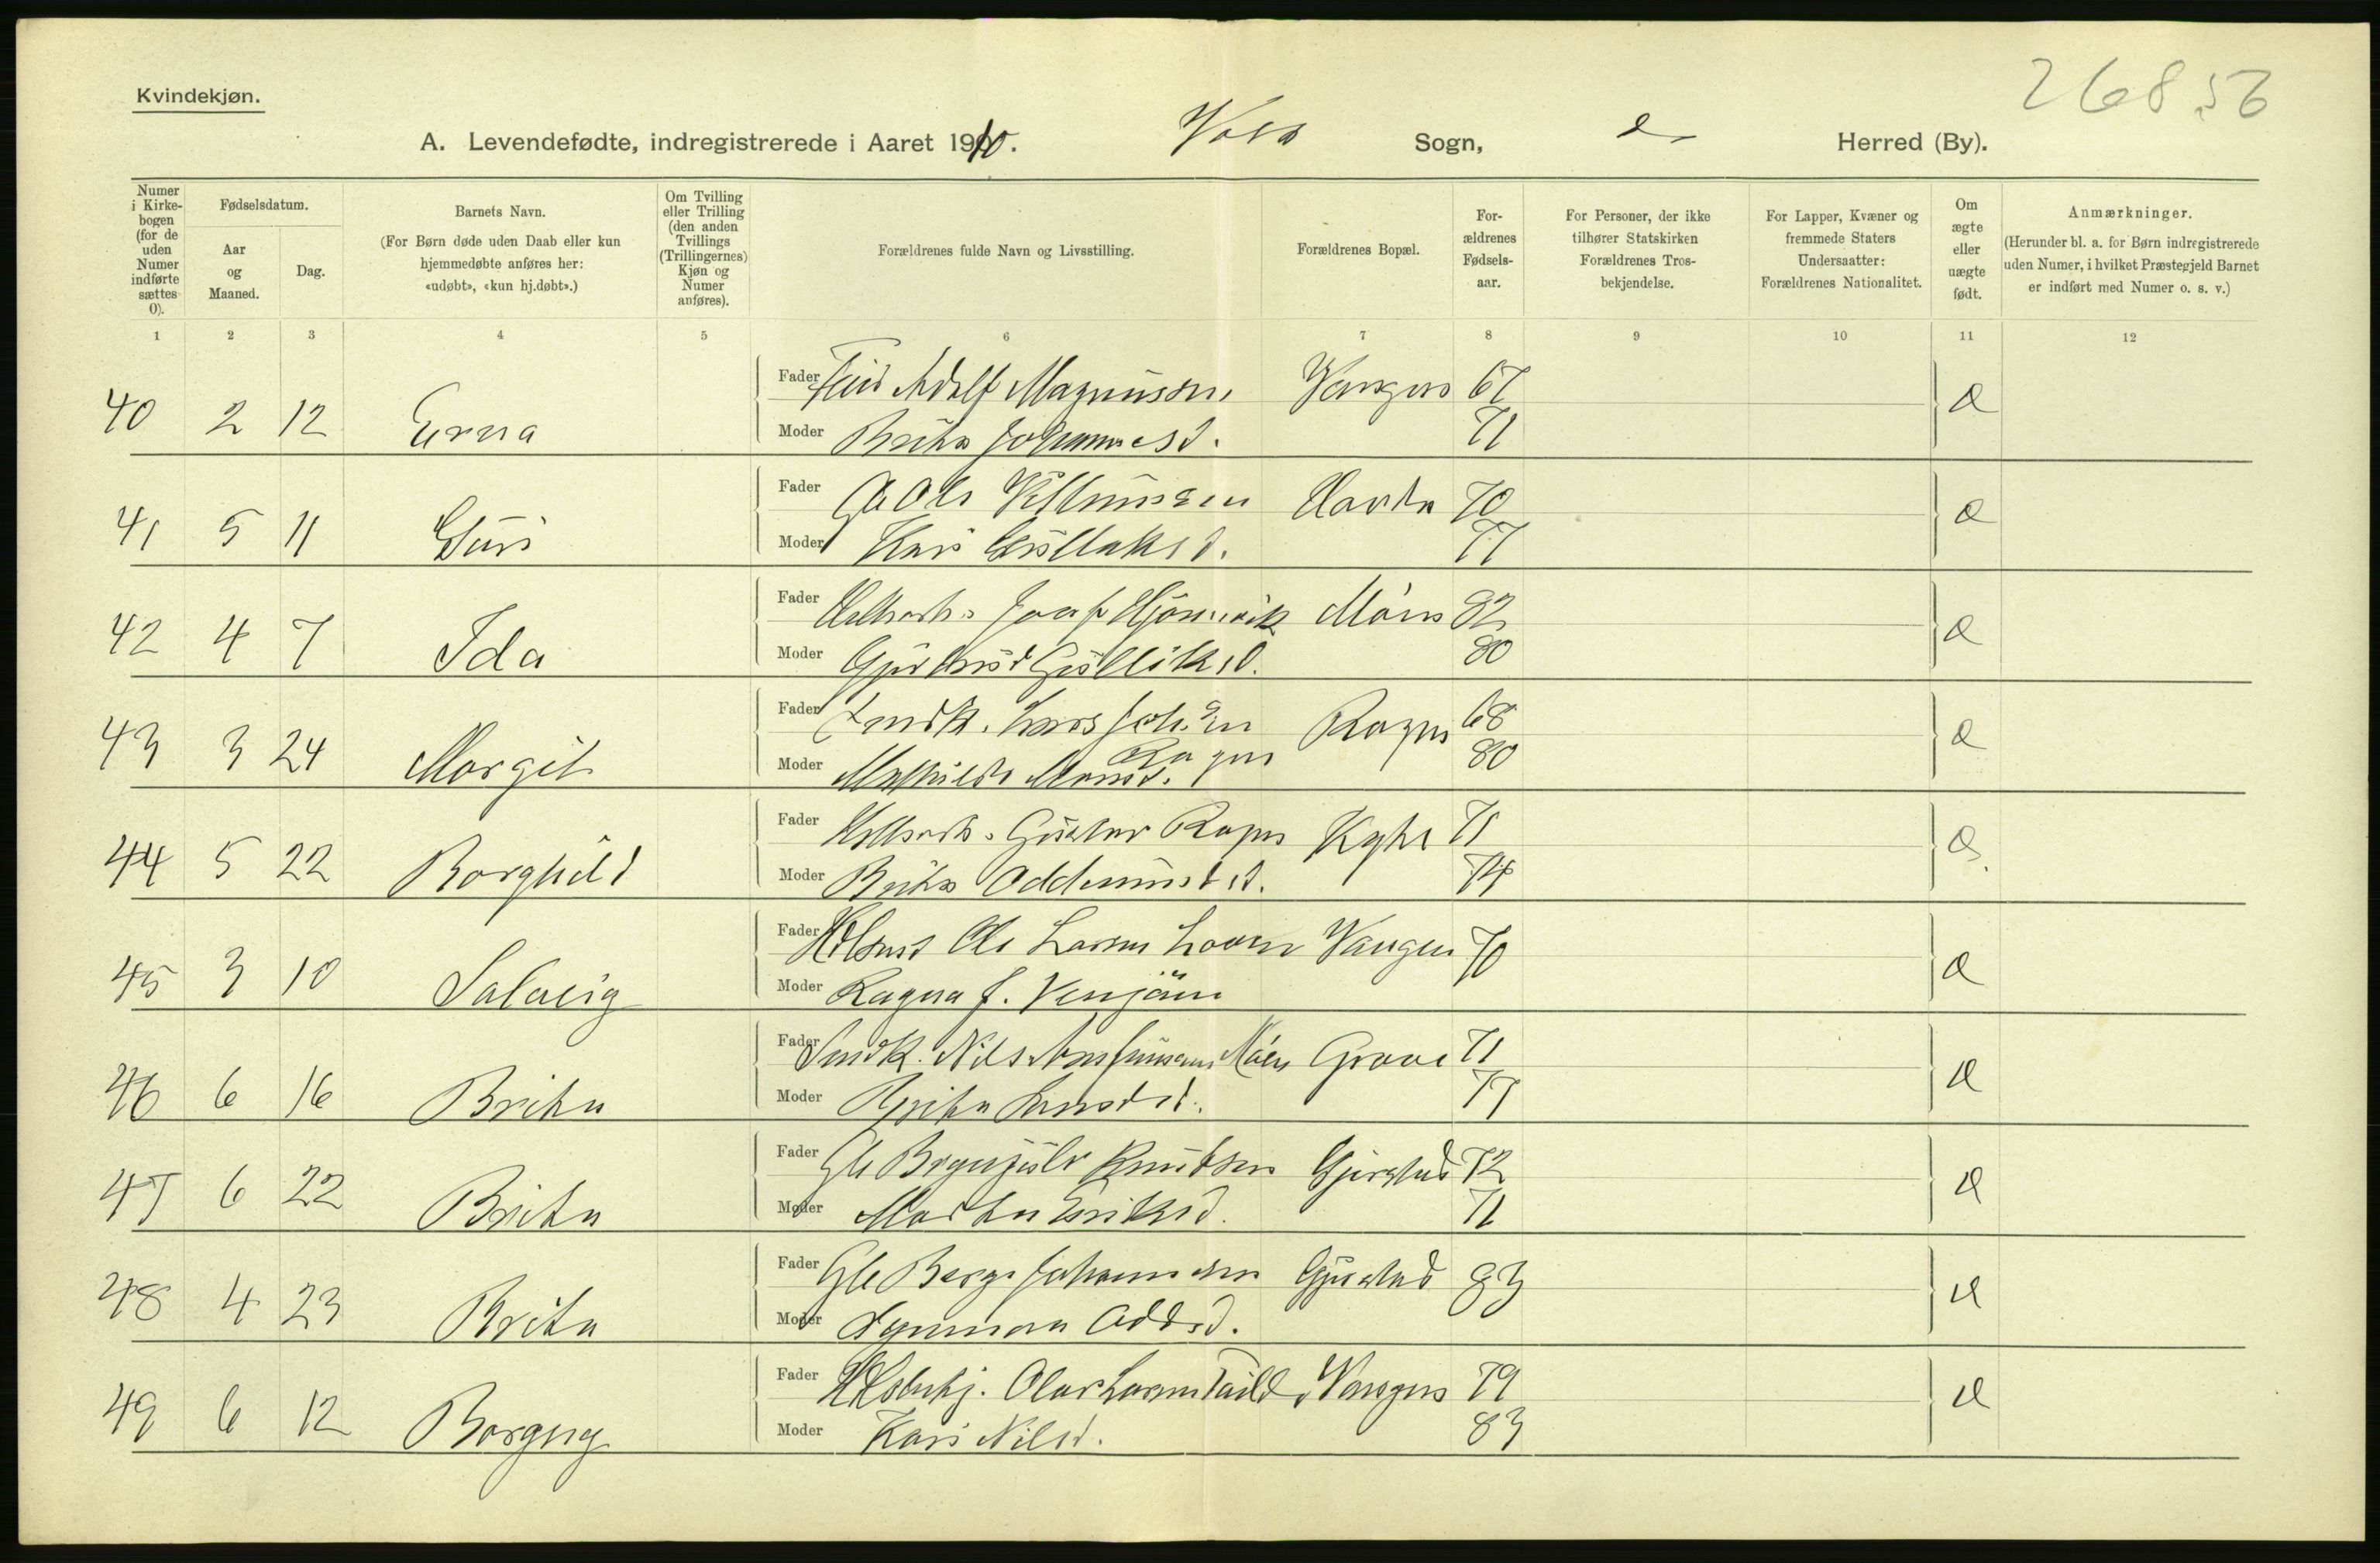 Kvindekjøn.
26856
A. Levendefødte, indregistrerede i Aaret 1910. Voss Sogn, Herred (By).
Numer i Kirkebogen (for de uden Numer indførte sættes 0).
Fødselsdatum.
Aar og Maaned.
Dag.
Barnets Navn.
(For Børn døde uden Daab eller kun hjemmedøbte anføres her: «udøbt», «kun hj.døbt».)
Om Tvilling eller Trilling (den anden Tvillings (Trillingernes) Kjøn og Numer anføres).
Forældrenes fulde Navn og Livsstilling.
Forældrenes Bopæl.
Forældrenes Fødselsaar.
For Personer, der ikke tilhører Statskirken Forældrenes Trosbekjendelse.
For Lapper, Kvæner og fremmede Staters Undersaatter: Forældrenes Nationalitet.
Om ægte eller uægte født.
Anmærkninger.
(Herunder bl. a. for Børn indregistrerede uden Numer, i hvilket Præstegjeld Barnet er indført med Numer o. s. v.)
1 2 3 4 5 6 7 8 9 10 11 12
Fader Adolf Magnussen Vangen 67
40 2 12 Erna Moder Britha Johannesd. 71
Fader Ole 70
41 5 11 Guri Moder Kari 77
Fader 82
42 4 7 Ida Moder Gjertrud Gulliksd. 80
Fader Lars Rogne 68
Rogne
43 3 24 Margit Moder Mathilde 80
Fader Gustav Rogne Kyte 71
44 5 22 Borghild Moder Britha Oddmundsd. 74
Fader Ole Larsen Loven Vangen 70
45 3 10 Salveig Moder Ragna f.
Fader Nils Grove 71
46 6 16 Britha Moder Britha 77
Fader Brynjulv Knutsen Gjerstad 72
47 6 22 Britha Moder Martha Eriksd. 71
Fader Berge Johannesen Gjerstad 83
48 4 23 Britha Moder Synneva Oddsd.
Fader Olav Larsen Vangen 79
49 6 12 Borgny Moder Kari Nilsd. 83